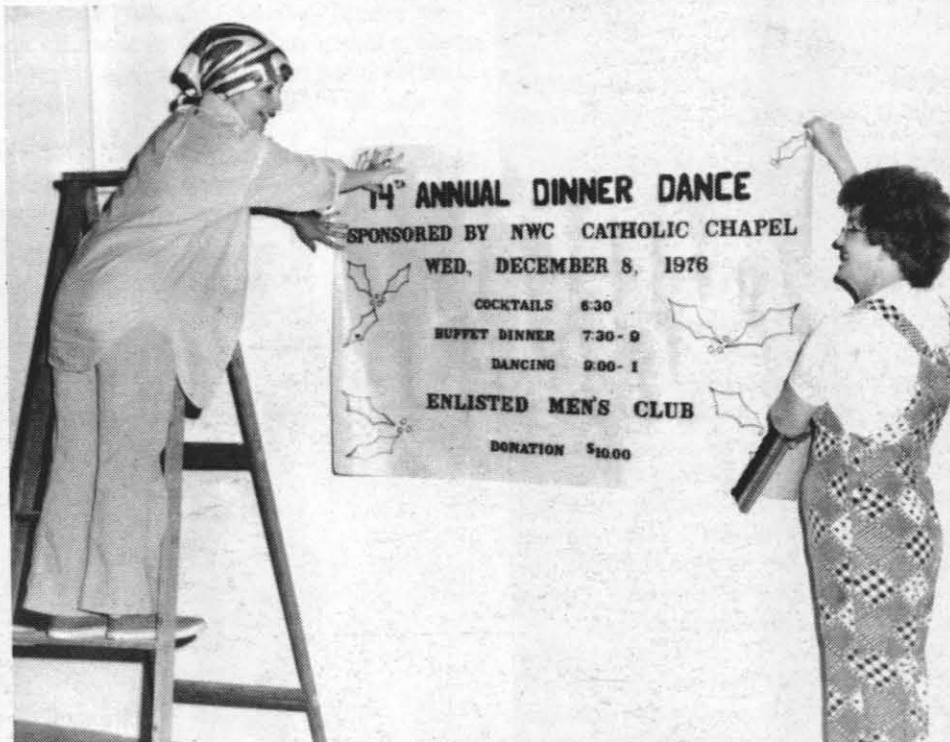 14th ANNUAL DINNER DANCE
SPONSORED BY NWC CATHOLIC CHAPEL
WED, DECEMBER 8, 1976
COCKTAILS 6:30
BUFFET DINNER 7:30 - 9
DANCING 9:00 - 1
ENLISTED MEN'S CLUB
DONATION $10.00